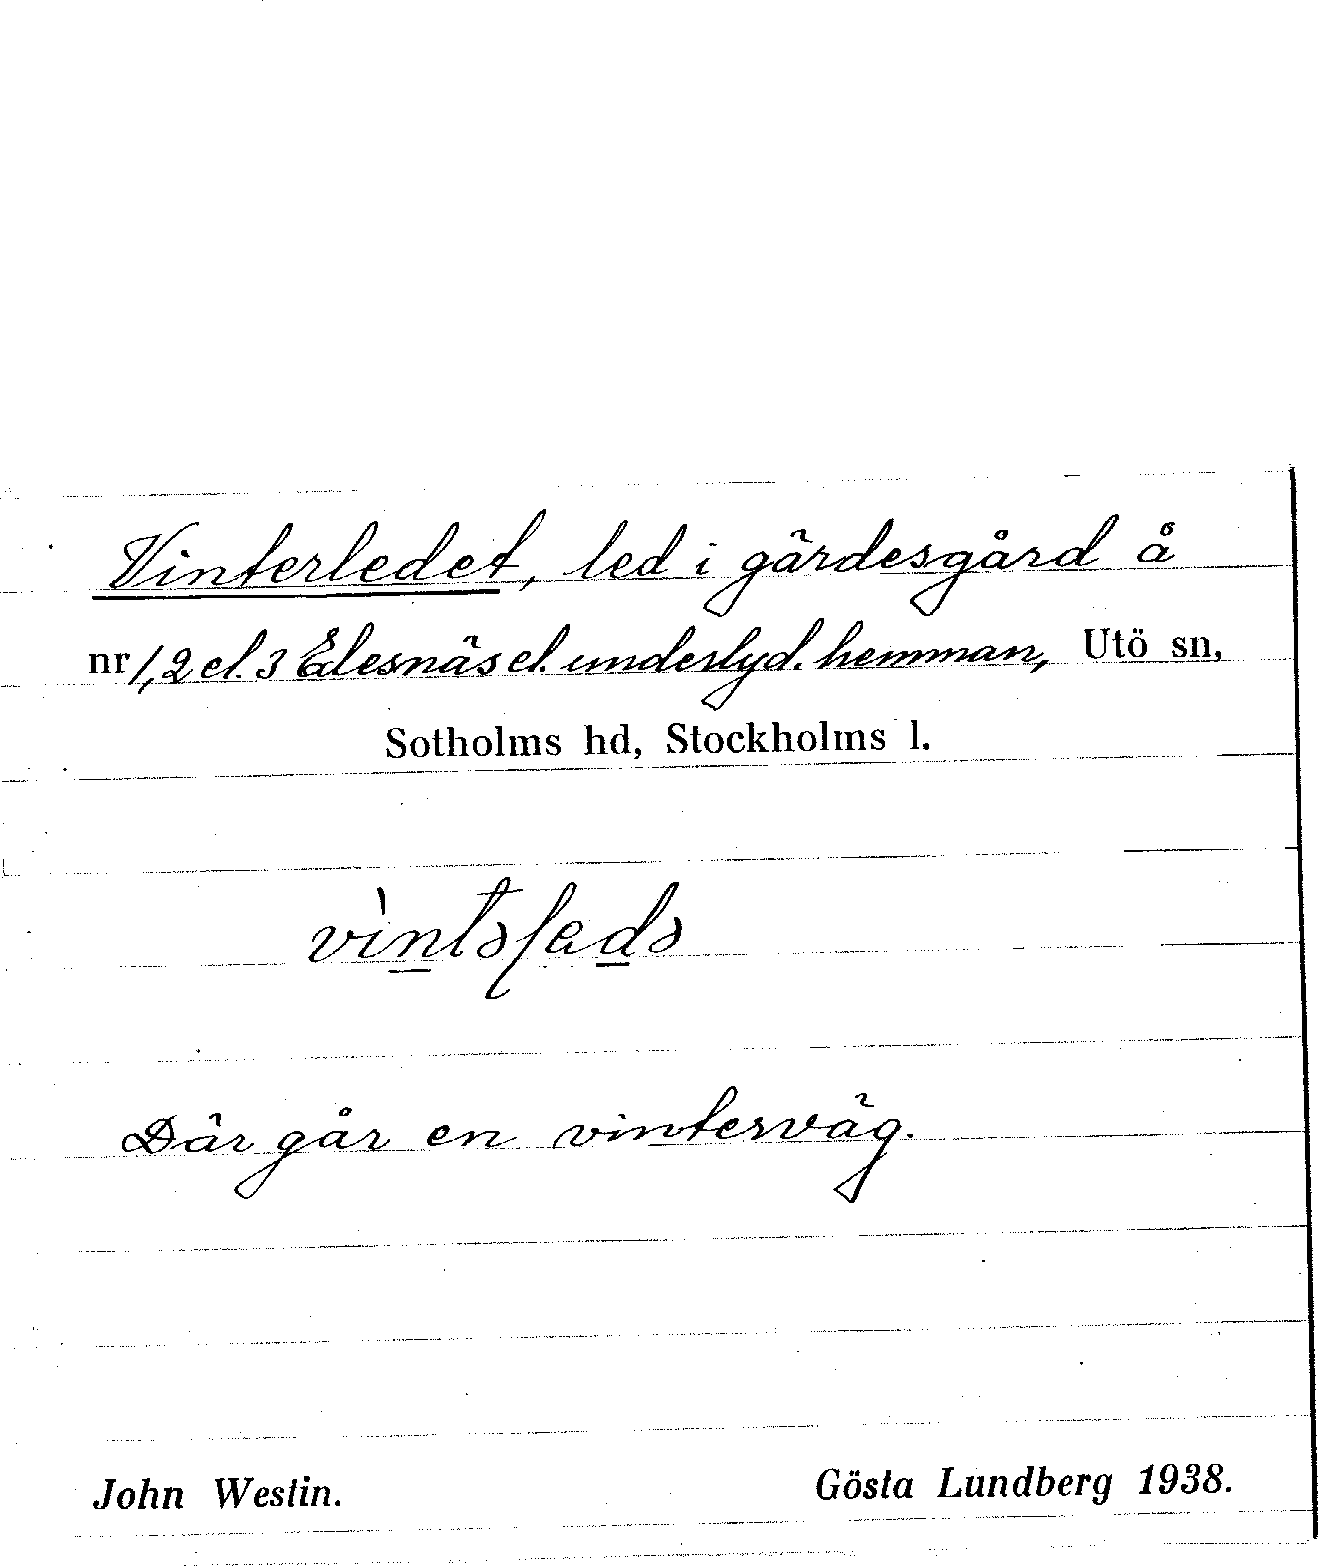 Vinterledet, led i gärdesgård å
nr 1, 2 el. 3 Ålesnäs el. underlyd. hemman, Utö sn,
Sotholms hd, Stockholms l.
Där går en vinterväg.
John Westin. Gösta Lundberg 1938.